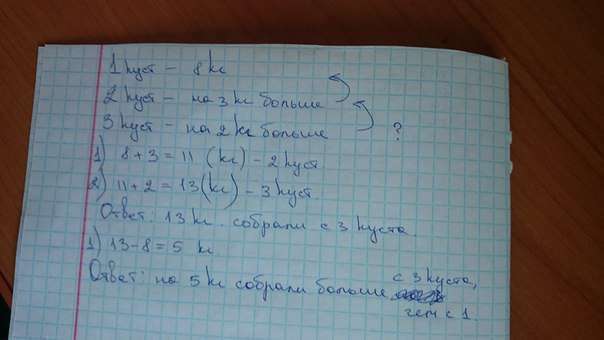 1 куст – 8 кг
2 куст – на 3 кг больше
3 куст – на 2 кг больше ?
1) 8 + 3 = 11 (кг) – 2 куст
2) 11 + 2 = 13 (кг) – 3 куст
Ответ: 13 кг. собрали с 3 куста.
1) 13 – 8 = 5 кг
Ответ: на 5 кг собрали больше с 3 куста,
чем с 1.